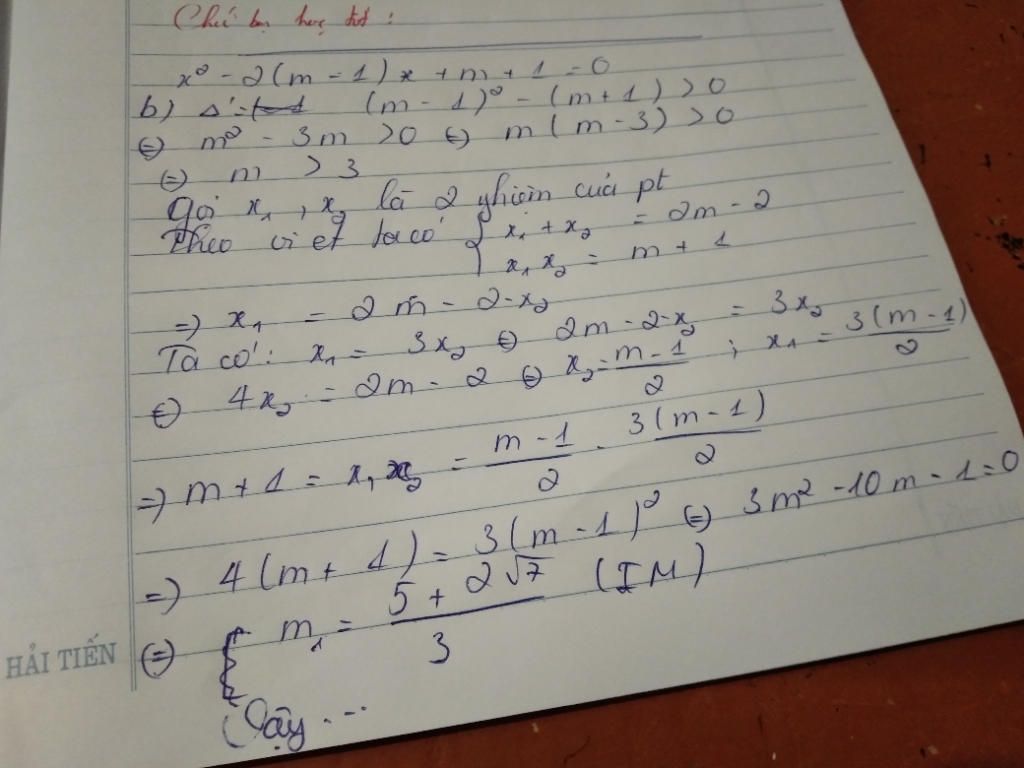 Chúc bạn học tốt !
x² - 2(m - 1)x + m + 1 = 0
b) Δ' = (m - 1)² - (m + 1) > 0
⇔ m² - 3m > 0 ⇔ m(m - 3) > 0
⇔ m > 3
Gọi x₁, x₂ là 2 nghiệm của pt
Theo vi et ta có { x₁ + x₂ = 2m - 2
x₁x₂ = m + 1
⇒ x₁ = 2m - 2 - x₂
Ta có: x₁ = 3x₂ ⇔ 2m - 2 - x₂ = 3x₂
⇔ 4x₂ = 2m - 2 ⇔ x₂ = (m - 1)/2 ; x₁ = 3(m - 1)/2
⇒ m + 1 = x₁x₂ = (m - 1)/2 . 3(m - 1)/2
⇒ 4(m + 1) = 3(m - 1)² ⇔ 3m² - 10m - 1 = 0
⇔ m₁ = (5 + 2√7)/3 (TM)
Vậy ...
HẢI TIẾN